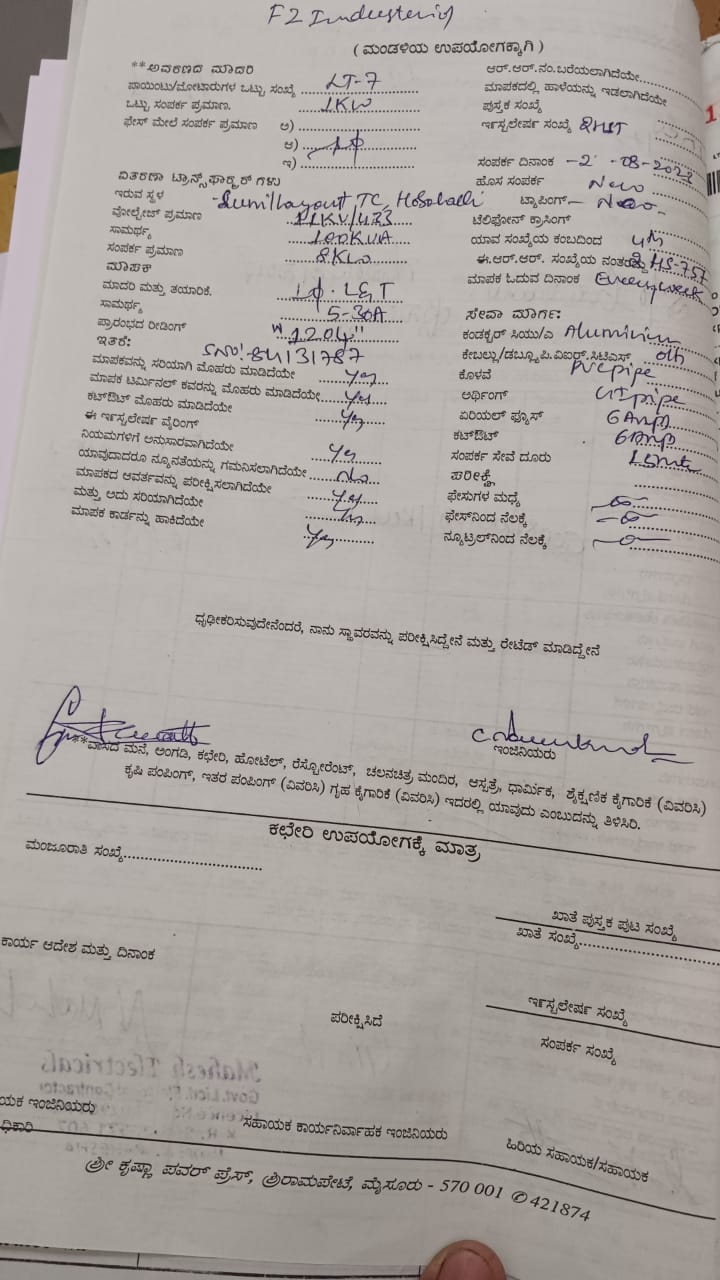 F2 Industering
( ಮಂಡಳಿಯ ಉಪಯೋಗಕ್ಕಾಗಿ )
**ಅವಕಣದ ಮಾದರಿ
ಪಾಯಿಂಟು/ಮೋಟಾರುಗಳ ಒಟ್ಟು ಸಂಖ್ಯೆ LT-7
ಒಟ್ಟು ಸಂಪರ್ಕ ಪ್ರಮಾಣ. 1KW
ಫೇಸ್ ಮೇಲೆ ಸಂಪರ್ಕ ಪ್ರಮಾಣ ಅ)
ಆ) 1φ
ಇ)
ವಿತರಣಾ ಟ್ರಾನ್ಸ್‌ಫಾರ್‍ಮರ್ ಗಳು
ಇರುವ ಸ್ಥಳ Layout, TC, Hosahalli
ವೋಲ್ಟೇಜ್ ಪ್ರಮಾಣ 11KV/433
ಸಾಮರ್ಥ್ಯ 100KVA
ಸಂಪರ್ಕ ಪ್ರಮಾಣ 8KW
ಮಾಪಕ
ಮಾದರಿ ಮತ್ತು ತಯಾರಿಕೆ. 1φ. L&T
ಸಾಮರ್ಥ್ಯ 5-30A
ಪ್ರಾರಂಭದ ರೀಡಿಂಗ್ "1204"
ಇತರೆ: SNO: 84131787
ಮಾಪಕವನ್ನು ಸರಿಯಾಗಿ ಮೊಹರು ಮಾಡಿದೆಯೇ Yes
ಮಾಪಕ ಟರ್ಮಿನಲ್ ಕವರನ್ನು ಮೊಹರು ಮಾಡಿದೆಯೇ Yes
ಕಟ್‌ಔಟ್ ಮೊಹರು ಮಾಡಿದೆಯೇ Yes
ಈ ಇನ್‌ಸ್ಟಲೇಷನ್ ವೈರಿಂಗ್
ನಿಯಮಗಳಿಗೆ ಅನುಸಾರವಾಗಿದೆಯೇ Yes
ಯಾವುದಾದರೂ ನ್ಯೂನತೆಯನ್ನು ಗಮನಿಸಲಾಗಿದೆಯೇ No
ಮಾಪಕದ ಆವರ್ತವನ್ನು ಪರೀಕ್ಷಿಸಲಾಗಿದೆಯೇ Yes
ಮತ್ತು ಅದು ಸರಿಯಾಗಿದೆಯೇ Yes
ಮಾಪಕ ಕಾರ್ಡನ್ನು ಹಾಕಿದೆಯೇ Yes
ಆರ್.ಆರ್.ನಂ.ಬರೆಯಲಾಗಿದೆಯೇ
ಮಾಪಕದಲ್ಲಿ ಹಾಳೆಯನ್ನು ಇಡಲಾಗಿದೆಯೇ
ಪುಸ್ತಕ ಸಂಖ್ಯೆ
ಇನ್‌ಸ್ಟಲೇಷನ್ ಸಂಖ್ಯೆ
ಸಂಪರ್ಕ ದಿನಾಂಕ -2-08-2023
ಹೊಸ ಸಂಪರ್ಕ New
ಟ್ಯಾಪಿಂಗ್ - New -
ಟೆಲಿಫೋನ್ ಕ್ರಾಸಿಂಗ್
ಯಾವ ಸಂಖ್ಯೆಯ ಕಂಬದಿಂದ
ಈ.ಆರ್.ಆರ್. ಸಂಖ್ಯೆಯ ನಂತರದ್ದೆ HS-757
ಮಾಪಕ ಓದುವ ದಿನಾಂಕ Every week
ಸೇವಾ ಮಾರ್ಗ:
ಕಂಡಕ್ಟರ್ ಸಿಯು/ಎ Aluminium
ಕೇಬಲ್ಲು/ಡಬ್ಲ್ಯೂ.ಪಿ.ವಿಐರ್.ಸಿಟಿಎಸ್
ಕೊಳವೆ PVC pipe
ಅರ್ಥಿಂಗ್ GI pipe
ಏರಿಯಲ್ ಫ್ಯೂಸ್ 6Amp
ಕಟ್‌ಔಟ್ 6Amp
ಸಂಪರ್ಕ ಸೇವೆ ದೂರು
ಪರೀಕ್ಷೆ
ಫೇಸುಗಳ ಮಧ್ಯೆ
ಫೇಸ್‌ನಿಂದ ನೆಲಕ್ಕೆ
ನ್ಯೂಟ್ರಲ್‌ನಿಂದ ನೆಲಕ್ಕೆ
ಧೃಢೀಕರಿಸುವುದೇನೆಂದರೆ, ನಾನು ಸ್ಥಾವರವನ್ನು ಪರೀಕ್ಷಿಸಿದ್ದೇನೆ ಮತ್ತು ರೇಟೆಡ್ ಮಾಡಿದ್ದೇನೆ
ಇಂಜಿನಿಯರು
**ವಾಸದ ಮನೆ, ಅಂಗಡಿ, ಕಛೇರಿ, ಹೋಟೆಲ್, ರೆಸ್ಟೋರೆಂಟ್, ಚಲನಚಿತ್ರ ಮಂದಿರ, ಆಸ್ಪತ್ರೆ, ಧಾರ್ಮಿಕ, ಶೈಕ್ಷಣಿಕ ಕೈಗಾರಿಕೆ (ವಿವರಿಸಿ)
ಕೃಷಿ ಪಂಪಿಂಗ್, ಇತರ ಪಂಪಿಂಗ್ (ವಿವರಿಸಿ) ಗೃಹ ಕೈಗಾರಿಕೆ (ವಿವರಿಸಿ) ಇದರಲ್ಲಿ ಯಾವುದು ಎಂಬುದನ್ನು ತಿಳಿಸಿರಿ.
ಕಛೇರಿ ಉಪಯೋಗಕ್ಕೆ ಮಾತ್ರ
ಮಂಜೂರಾತಿ ಸಂಖ್ಯೆ
ಖಾತೆ ಪುಸ್ತಕ ಪುಟ ಸಂಖ್ಯೆ
ಖಾತೆ ಸಂಖ್ಯೆ
ಕಾರ್ಯ ಆದೇಶ ಮತ್ತು ದಿನಾಂಕ
ಇನ್‌ಸ್ಟಲೇಷನ್ ಸಂಖ್ಯೆ
ಪರೀಕ್ಷಿಸಿದೆ
ಸಂಪರ್ಕ ಸಂಖ್ಯೆ
ಯಕ ಇಂಜಿನಿಯರು
ಧಿಕಾರಿ
ಸಹಾಯಕ ಕಾರ್ಯನಿರ್ವಾಹಕ ಇಂಜಿನಿಯರು
ಹಿರಿಯ ಸಹಾಯಕ/ಸಹಾಯಕ
ಶ್ರೀ ಕೃಷ್ಣಾ ಪವರ್ ಪ್ರೆಸ್, ಶ್ರೀರಾಮಪೇಟೆ, ಮೈಸೂರು - 570 001 ✆ 421874